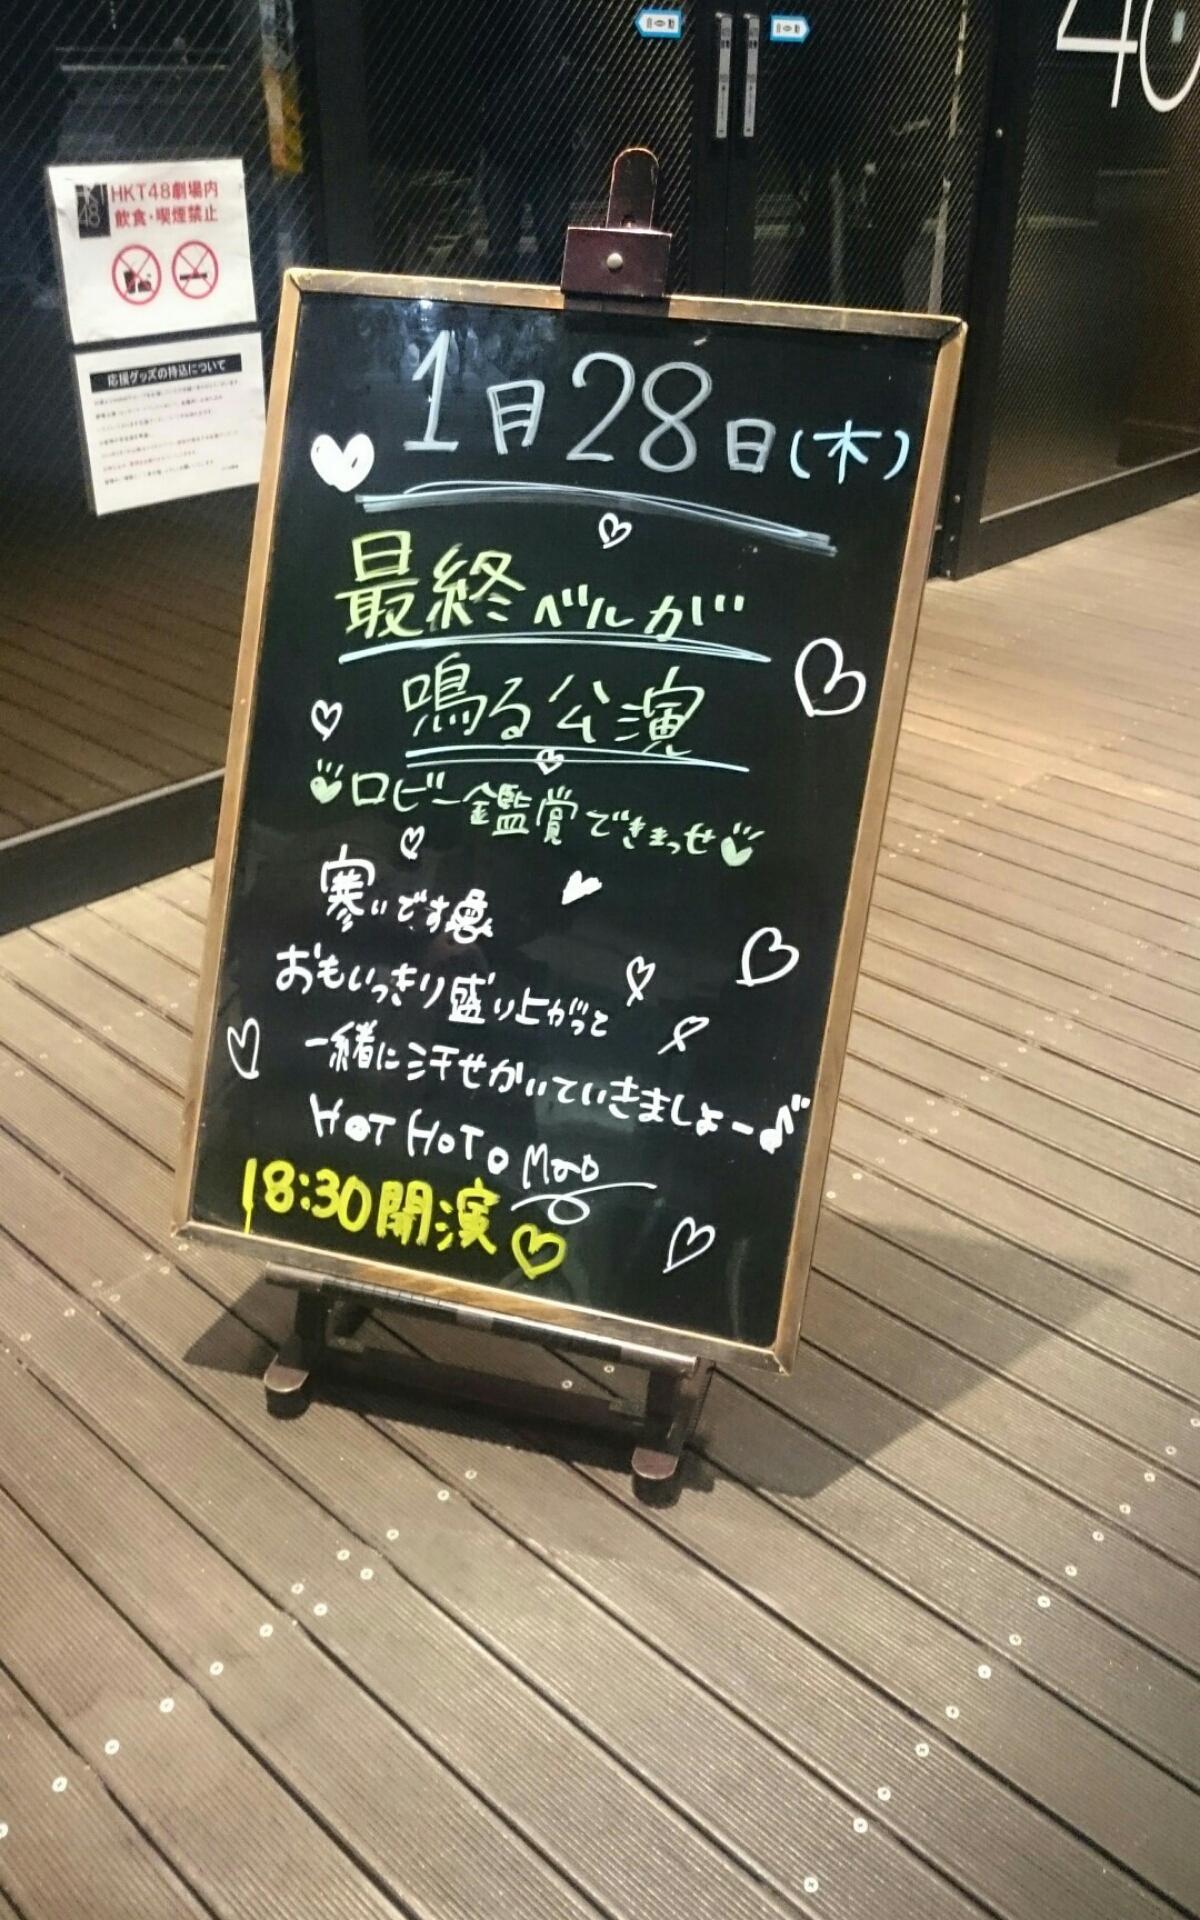 自動
自動
HKT
48
HKT48劇場内
飲食・喫煙禁止
応援グッズの持込について
1月28日(木)
最終ベルが
鳴る公演
ロビー鑑賞できまっせ
寒いです
おもいっきり盛り上がって
一緒に汗せかいていきましょー♪
HOT HOT。Mao
18:30開演